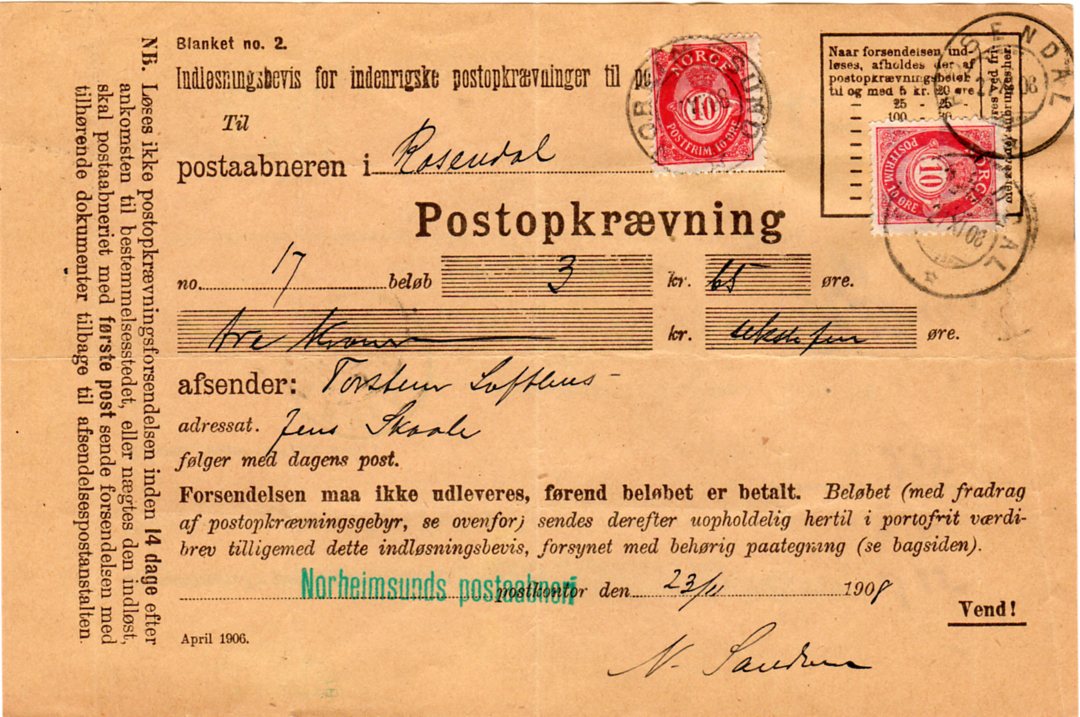 Blanket no. 2.
Indløsningsbevis for indenrigske postopkrævninger til
Til
postaabneren i Rosendal
NORGE
10
POSTFRIM. 10 ØRE
Naar forsendelsen ind-
løses, afholdes der af
postopkrævningsbeløb
til og med 5 kr. 20 øre
25 - 25 -
100 - 30
ROSENDAL
NORGE
10
POSTFRIM. 10 ØRE
Postopkrævning
no. 17 beløb 3 kr. 65 øre.
tre Kroner kr. øre.
afsender: Torstein
adressat. Jens Skaale
følger med dagens post.
Forsendelsen maa ikke udleveres, førend beløbet er betalt. Beløbet (med fradrag
af postopkrævningsgebyr, se ovenfor) sendes derefter uopholdelig hertil i portofrit værdi-
brev tilligemed dette indløsningsbevis, forsynet med behørig paategning (se bagsiden).
Norheimsunds postaabneri postkontor den 23/11 1908
Vend!
April 1906.
NB. Løses ikke postopkrævningsforsendelsen inden 14 dage efter
ankomsten til bestemmelsesstedet, eller nægtes den indløst,
skal postaabneriet med første post sende forsendelsen med
tilhørende dokumenter tilbage til afsendelsespostanstalten.